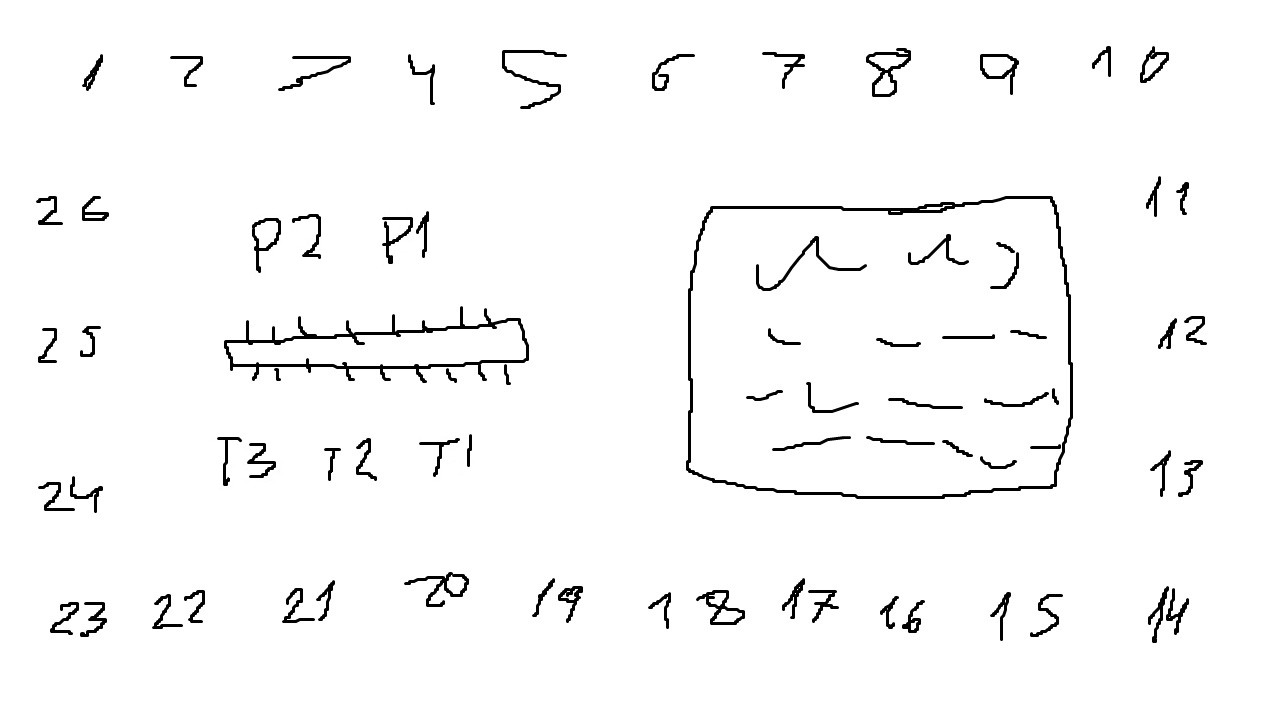 1 2 4 5 6 7 8 9 10
26 11
P2 P1
25 12
T3 T2 T1
24 13
23 22 21 20 19 18 17 16 15 14